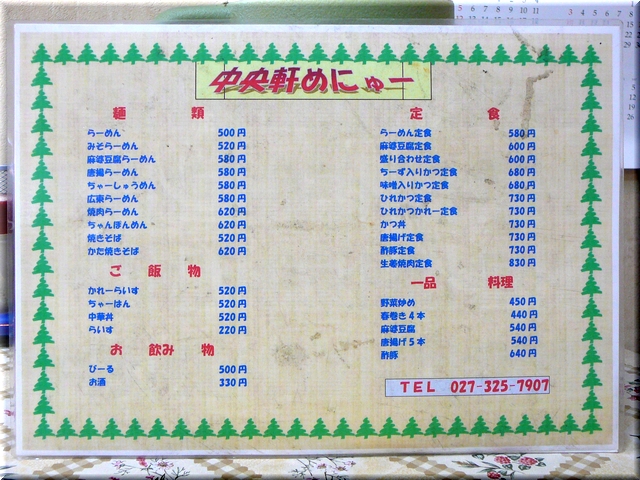 中央軒めにゅー
麺 類
らーめん 500円
みそらーめん 520円
麻婆豆腐らーめん 580円
唐揚らーめん 580円
ちゃーしゅうめん 580円
広東らーめん 580円
焼肉らーめん 620円
ちゃんぽんめん 620円
焼きそば 520円
かた焼きそば 620円
ご 飯 物
かれーらいす 520円
ちゃーはん 520円
中華丼 520円
らいす 220円
お 飲み 物
びーる 500円
お酒 330円
定 食
らーめん定食 580円
麻婆豆腐定食 600円
盛り合わせ定食 600円
ちーず入りかつ定食 680円
味噌入りかつ定食 680円
ひれかつ定食 730円
ひれかつかれー定食 730円
かつ丼 730円
唐揚げ定食 730円
酢豚定食 730円
生姜焼肉定食 830円
一品 料理
野菜炒め 450円
春巻き4本 440円
麻婆豆腐 540円
唐揚げ5本 540円
酢豚 640円
TEL 027-325-7907